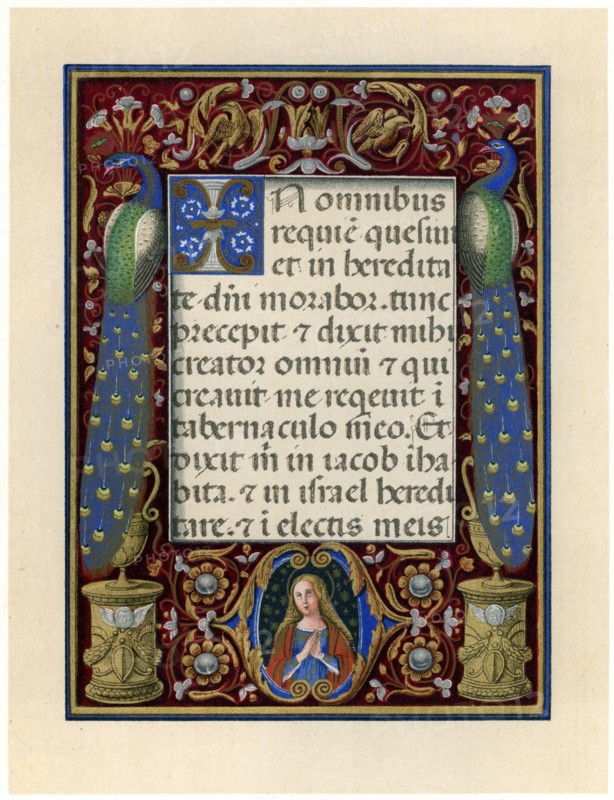 IN omnibus
requiē quesiui
et in heredita
te dn̄i morabor. tunc
precepit ⁊ dixit mihi
creator omniū ⁊ qui
creauit me reqeuit ī
tabernaculo meo. Et
dixit m̄ in iacob īha
bita. ⁊ in israel heredi
tare. ⁊ ī electis meis
PHOTO12